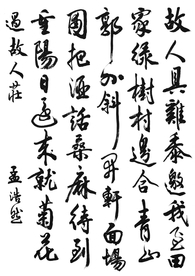 故人具雞黍邀我至田
家綠樹村邊合青山
郭外斜開軒面場
圃把酒話桑麻待到
重陽日還來就菊花
過故人莊 孟浩然